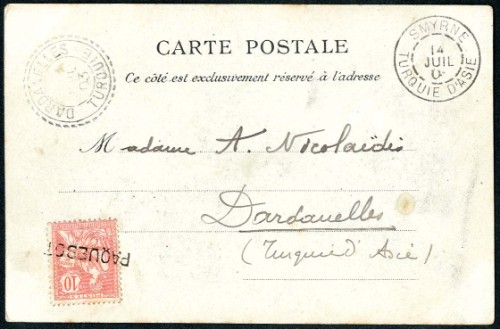 CARTE POSTALE
Ce côté est exclusivement réservé à l'adresse
SMYRNE
14
JUIL
TURQUIE D'ASIE
DARDANELLES
TURQUIE
Madame A. Nicolaïdis
Dardanelles
(Turquie d'Asie)
PAQUEBOT
10